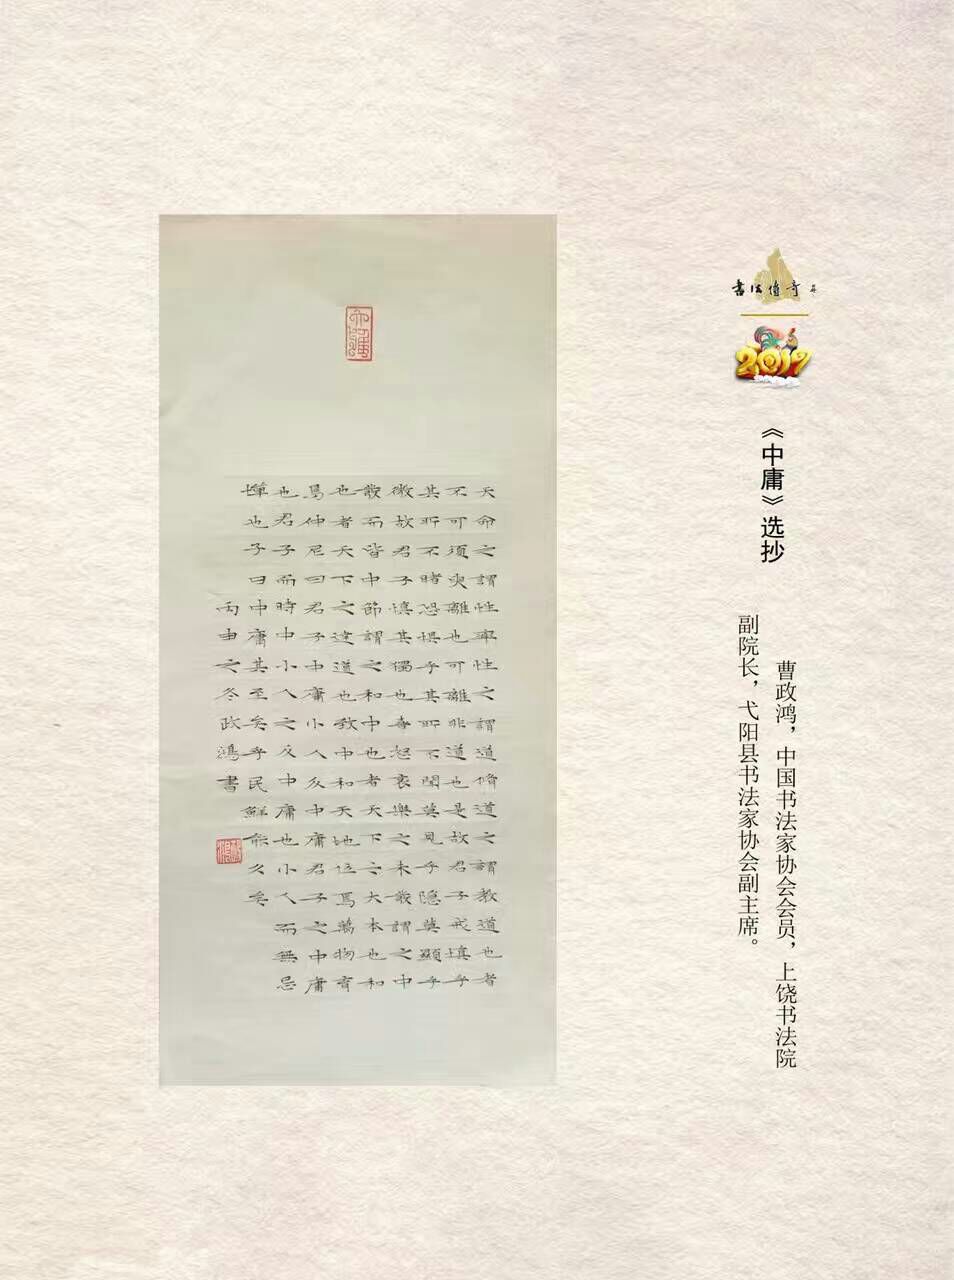 書法傳奇
2017
《中庸》选抄
曹政鸿，中国书法家协会会员，上饶书法院
副院长，弋阳县书法家协会副主席。
天命之謂性率性之謂道脩道之謂教道也者
不可須臾離也可離非道也是故君子戒慎乎
其所不睹恐懼乎其所不聞莫見乎隱莫顯乎
微故君子慎其獨也喜怒哀樂之未發謂之中
發而皆中節謂之和中也者天下之大本也和
也者天下之達道也致中和天地位焉萬物育
焉仲尼曰君子中庸小人反中庸君子之中庸
也君子而時中小人之反中庸也小人而無忌
憚也子曰中庸其至矣乎民鮮能久矣
丙申之冬政鴻書